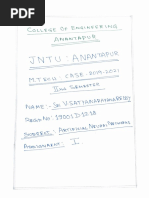 COLLEGE OF ENGINEERING
ANANTAPUR
JNTU : ANANTAPUR
MTECH : CASE 2019-2021
IInd SEMESTER
NAME:- Sri V SATYANARAYANA REDDY
Regd No: 19001D7038
SUBJECT:- ARTIFICIAL NEURAL NETWORKS
ASSIGNMENT:- I